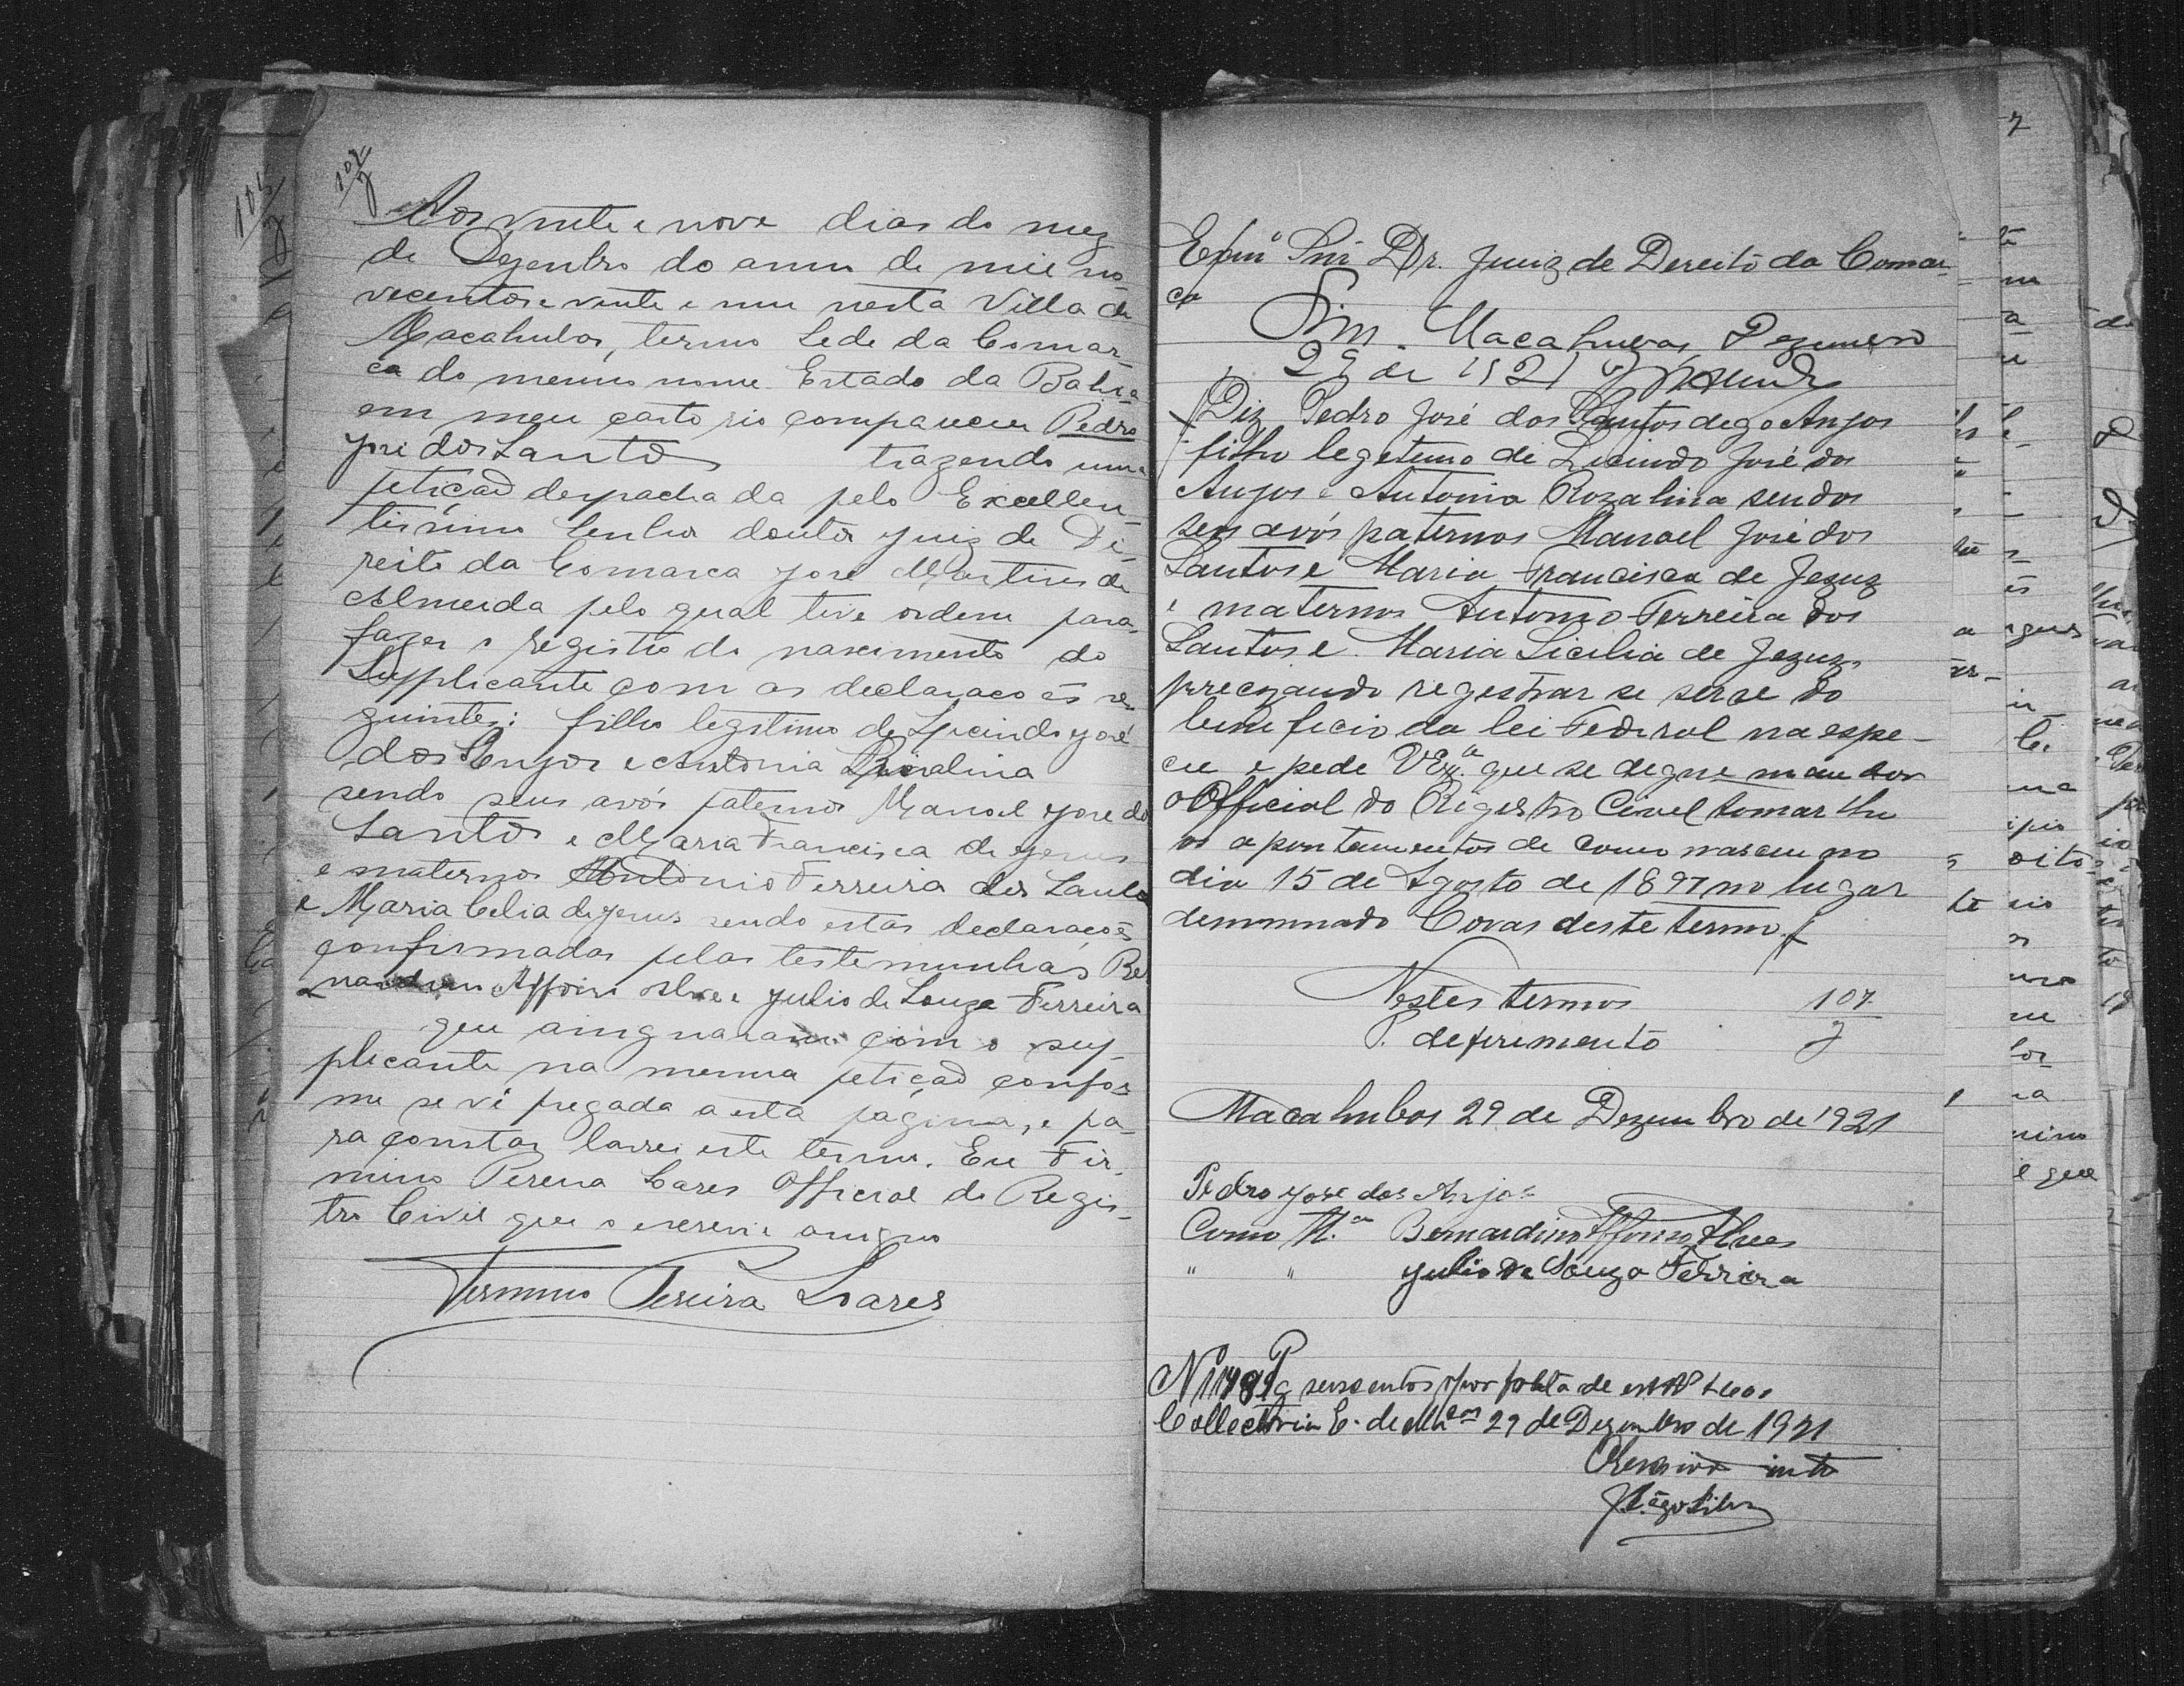 107
Aos vinte e nove dias do mez
de Dezembro do anno de mil no
vecentos e vinte e um nesta Villa de
Macahubas, termo Sede da Comar
ca do mesmo nome Estado da Bahia
em meu cartorio compareceu Pedro
José dos Santos trazendo uma
petição despachada pelo Excellen-
tissimo Senhor doutor Juiz de Di-
reito da Comarca José Martins de
Almeida pelo qual tive ordem para
fazer o registro de nascimento do
Supplicante com as declarações se
guintes: filho legitimo de Lucindo José
dos Anjos e Antonia Rosalina
sendo seus avós paternos Manoel José dos
Santos e Maria Francisca de Jesus
e maternos Antonio Ferreira dos Santos
e Maria Celia de Jesus sendo estas declarações
confirmadas pelas testemunhas Ber
nardino Affonso Alves e Julio de Souza Ferreira
que assignaram com o sup-
plicante na mesma petição confor
me se vê pregada a esta pagina, e pa-
ra constar lavrei este termo. Eu Fir-
mino Pereira Soares Official do Regis-
tro Civil que o escrevi e assigno
Firmino Pereira Soares
Exmº Snr Dr. Juiz de Dereito da Comar-
ca
Sim. Macahubas, Dezembro
29 de 1921
Diz Pedro José dos Santos digo Anjos
filho legetimo de Lucindo José dos
Anjos e Antonia Rozalina sendos
seus avós paternos Manoel José dos
Santos e Maria Francisca de Jezuz
e maternos Antonio Ferreira dos
Santos e Maria Sicilia de Jezuz,
precizando registrar se serve do
beneficio da lei Federal na espe-
cie e pede V Exª que se digne mandar
o Official do Registro Civel tomar lhe
os apontamentos de como nasceu no
dia 15 de Agosto de 1897 no lugar
denominado Covas deste termo.
Nestes termos 107
P. deferimento
Macahubas 29 de Dezembro de 1921
Pedro José dos Anjos
Como Tª Bernardino Affonso Alves
" " Julio de Souza Ferreira
seiscentos por falta de
Collectoria E. de 29 de Dezembro de 1921